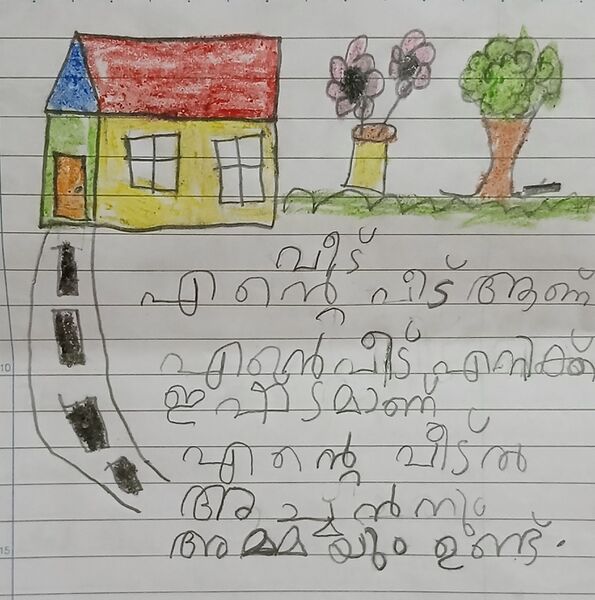 വീട്
എൻ്റെ വീട് ആണ്
എൻ്റെ വീട് എനിക്ക്
ഇഷ്ടമാണ്
എൻ്റെ വീട്ൽ
അച്ഛൻനും
അമ്മയും ഉണ്ട്.